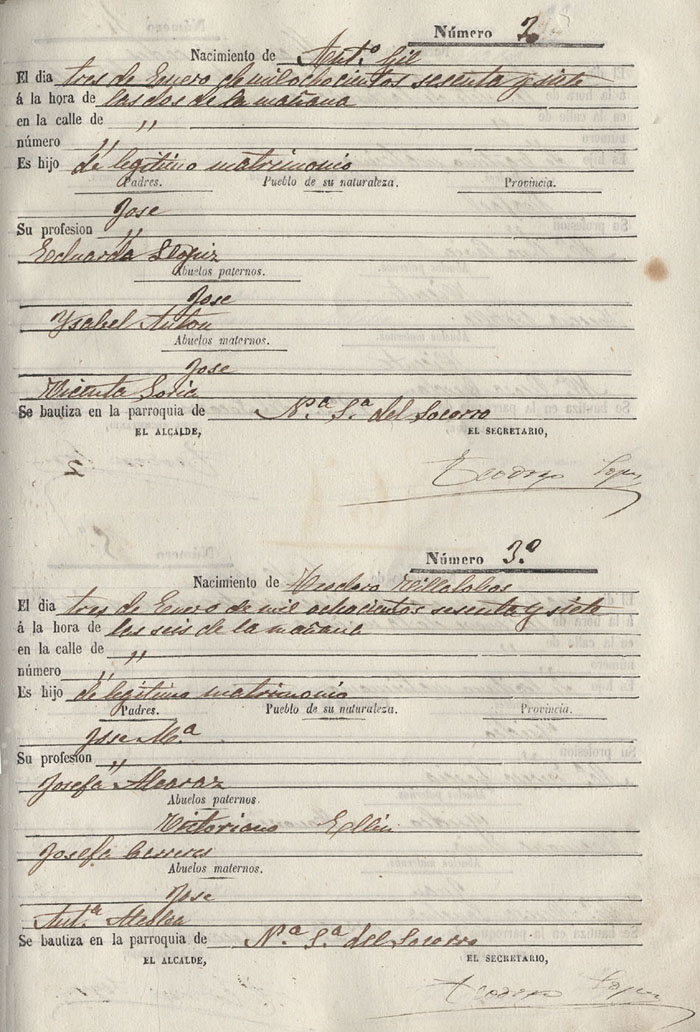 Número 2
Nacimiento de Antº Gil
El dia tres de Enero de mil ochocientos sesenta y siete
á la hora de las dos de la mañana
en la calle de "
número "
Es hijo de legitimo matrimonio
Padres. Pueblo de su naturaleza. Provincia.
Jose
Su profesion "
Eduarda
Abuelos paternos.
Jose
Ysabel Anton
Abuelos maternos.
Jose
Vicenta Soria
Se bautiza en la parroquia de Nª Sª del Socorro
EL ALCALDE, EL SECRETARIO,
Teodoro
Número 3º
Nacimiento de Teodoro Villalobos
El dia tres de Enero de mil ochocientos sesenta y siete
á la hora de las seis de la mañana
en la calle de "
número "
Es hijo de legitimo matrimonio
Padres. Pueblo de su naturaleza. Provincia.
Jose Mª
Su profesion "
Josefa Alcaraz
Abuelos paternos.
Victoriano
Josefa
Abuelos maternos.
Jose
Antª
Se bautiza en la parroquia de Nª Sª del Socorro
EL ALCALDE, EL SECRETARIO,
Teodoro